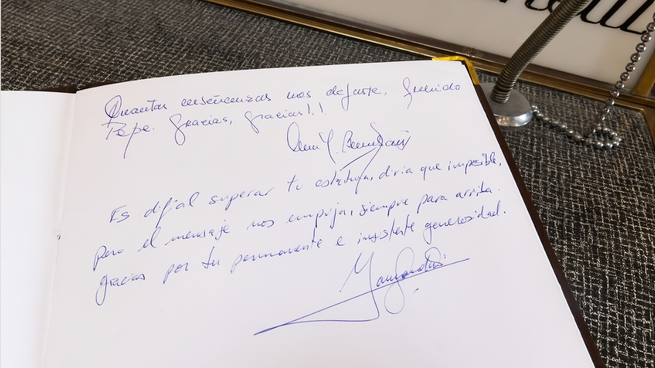 Quantas enseñanzas nos dejaste, Querido
Pepe. Gracias, gracias!!
Es difícil superar tu estatura, diría que imposible,
pero el mensaje nos empuja, siempre para arriba.
gracias por tu permanente e insistente generosidad.